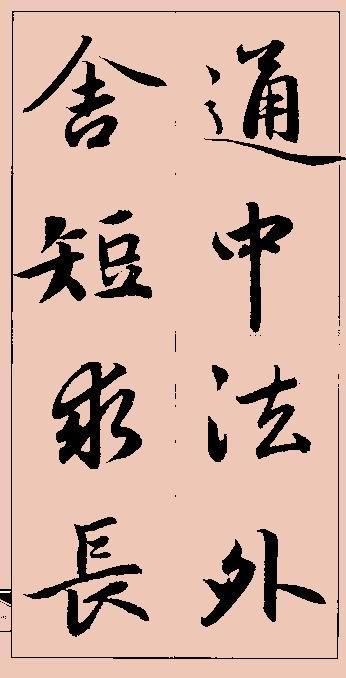 通中法外
舍短求長